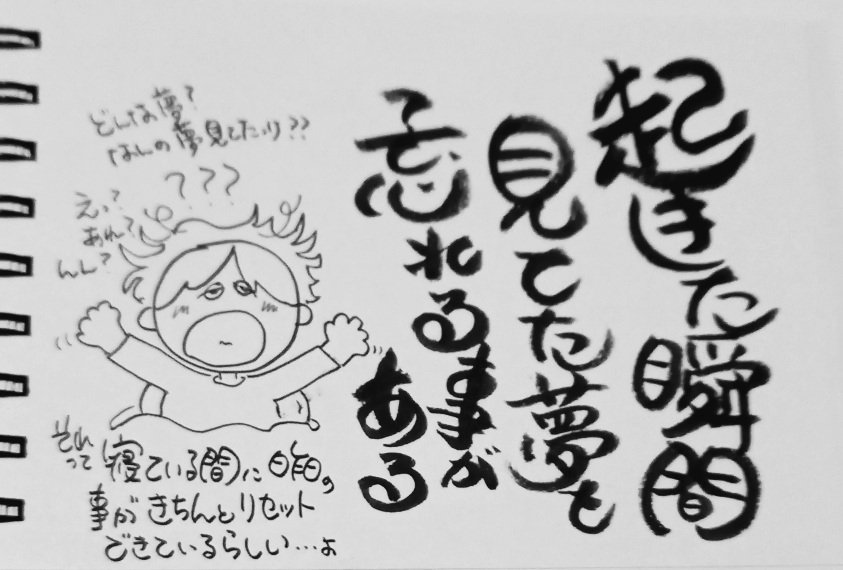 起きた瞬間
見てた夢を
忘れる事が
ある
どんな夢?
なんの夢見てたっけ??
???
えっ?
あれ?
んん?
それって寝ている間に昨日の
事がきちんとリセット
できているらしい…よ